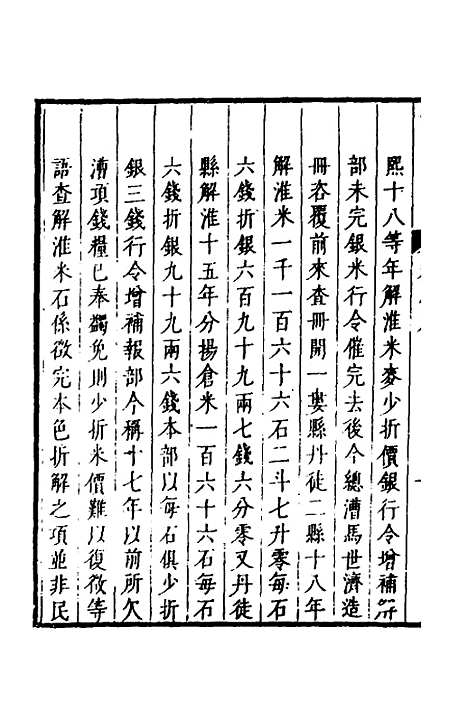 熙十八等年解淮米麥少折價銀行令增補所
部未完銀米行令催完去後今總漕馬世濟造
冊咨覆前來查冊開一婁縣丹徒二縣十八年
解淮米一千一百六十六石二斗七升零每石
六錢折銀六百九十九兩七錢六分零又丹徒
縣解淮十五年分揚倉米一百六十六石每石
六錢折銀九十九兩六錢本部以每石俱少折
銀三錢行令增補報部今稱十七年以前所欠
漕項錢糧已奉蠲免則少折米價難以復徵等
語查解淮米石係徵完本色折解之項並非民